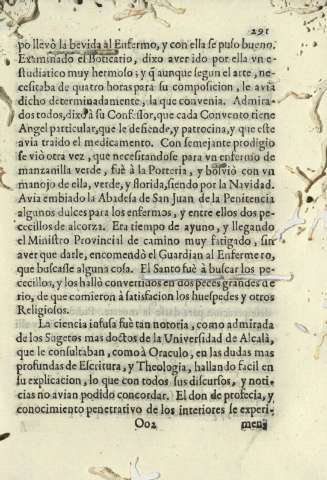 291
po llevò la bevida al Enfermo, y con ella se puso bueno.
Examinado el Boticario, dixo aver ido por ella vn e-
studiatico muy hermoso; y q̃ aunque segun el arte, ne-
cesitaba de quatro horas para su composicion, le avia
dicho determinadamente, la que convenia. Admira-
dos todos, dixo à su Confessor, que cada Convento tiene
Angel particular, que le defiende, y patrocina, y que este
avia traido el medicamento. Con semejante prodigio
se viò otra vez, que necesitandose para vn enfermo de
manzanilla verde, fuè à la Porteria, y bolviò con vn
manojo de ella, verde, y florida, siendo por la Navidad.
Avia embiado la Abadesa de San Juan de la Penitencia
algunos dulces para los enfermos, y entre ellos dos pe-
cecillos de alcorza. Era tiempo de ayuno, y llegando
el Ministro Provincial de camino muy fatigado, sin
aver que darle, encomendò el Guardian al Enfermero,
que buscasse alguna cosa. El Santo fuè à buscar los pe-
cecillos, y los hallò convertidos en dos peces grandes de
rio, de que comieron à satisfacion los huespedes y otros
Religiosos.
La ciencia infusa fuè tan notoria, como admirada
de los Sugetos mas doctos de la Universidad de Alcalà,
que le consultaban, como à Oraculo, en las dudas mas
profundas de Escritura, y Theologia, hallando facil en
su explicacion, lo que con todos sus discursos, y noti-
cias no avian podido concordar. El don de profecia, y
conocimiento penetrativo de los interiores se experi-
Oo2 men-